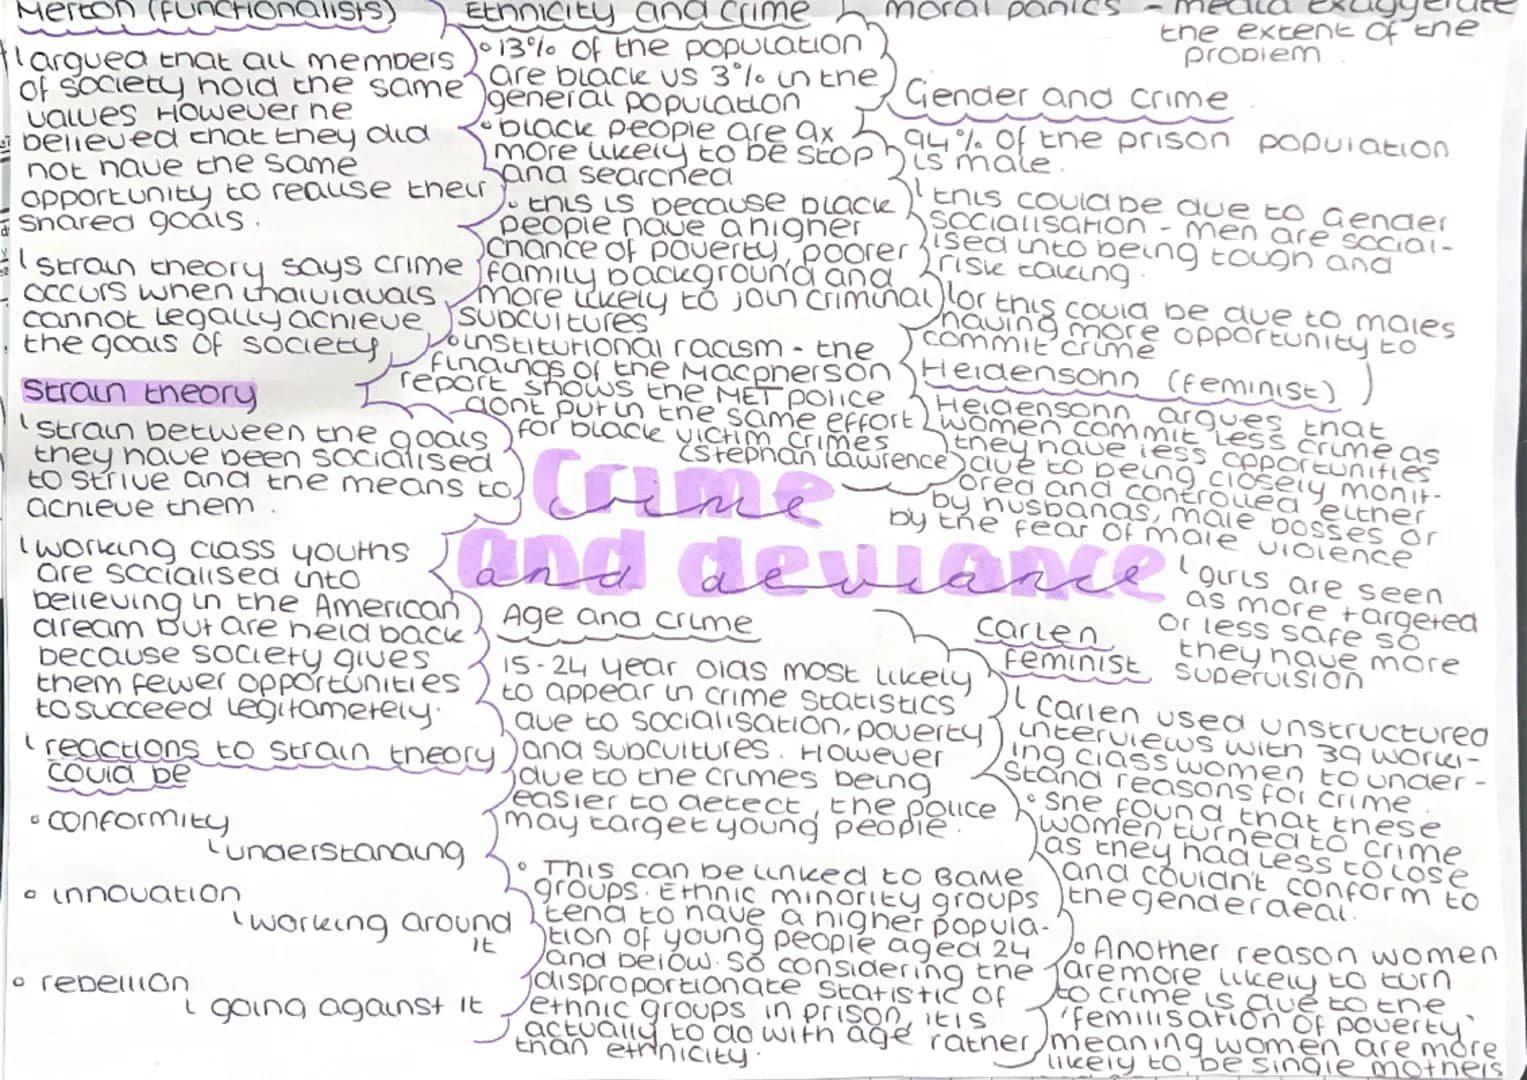 Merton (functionalists)
largued that all members
of society hold the same
values However he
believed that they did
not have the same
opportunity to realise their
shared goals.
strain theory says crime
occurs when individuals
cannot legally achieve
the goals of society
Strain theory
strain between the goals
they have been socialised
to strive and the means to
achieve them.
working class youths
are socialised into
believing in the American
dream but are held back
because society gives
them fewer opportunities
to succeed legitametely.
reactions to strain theory
could be
• conformity
understanding
• innovation
working around
it
• rebellion
going against it
Ethnicity and crime
• 13% of the population
are black vs 3% in the
general population
• black people are 9x
more likely to be stop
and searched
• this is because black
people have a higher
chance of poverty, poorer
family background and
more likely to join criminal
subcultures
• institutional racism - the
findings of the Macpherson
report shows the MET police
dont put in the same effort
for black victim crimes
(Stephan Lawrence
Crime
and deviance
Age and crime
15-24 year olds most likely
to appear in crime statistics
due to socialisation, poverty
and subcultures. However
due to the crimes being
easier to detect, the police
may target young people.
• This can be linked to BAME
groups. Ethnic minority groups
tend to have a higher popula-
tion of young people aged 24
and below. So considering the
disproportionate statistic of
ethnic groups in prison, it is
actually to do with age rather
than ethnicity.
moral panics - media exaggerate
the extent of the
problem.
Gender and crime
94% of the prison population
is male.
this could be due to Gender
socialisation - men are social-
ised into being tough and
risk taking.
or this could be due to males
having more opportunity to
commit crime
Heidensonn (feminist)
Heidensonn argues that
women commit less crime as
they have less opportunities
due to being closely monit-
ored and controlled either
by husbands, male bosses or
by the fear of male violence
girls are seen
as more targeted
or less safe so
they have more
supervision
Carlen
feminist
Carlen used unstructured
interviews with 39 work-
ing class women to under-
stand reasons for crime.
• She found that these
women turned to crime
as they had less to lose
and couldn't conform to
the gender deal.
• Another reason women
are more likely to turn
to crime is due to the
'femilisation of poverty'
meaning women are more
likely to be single mothers